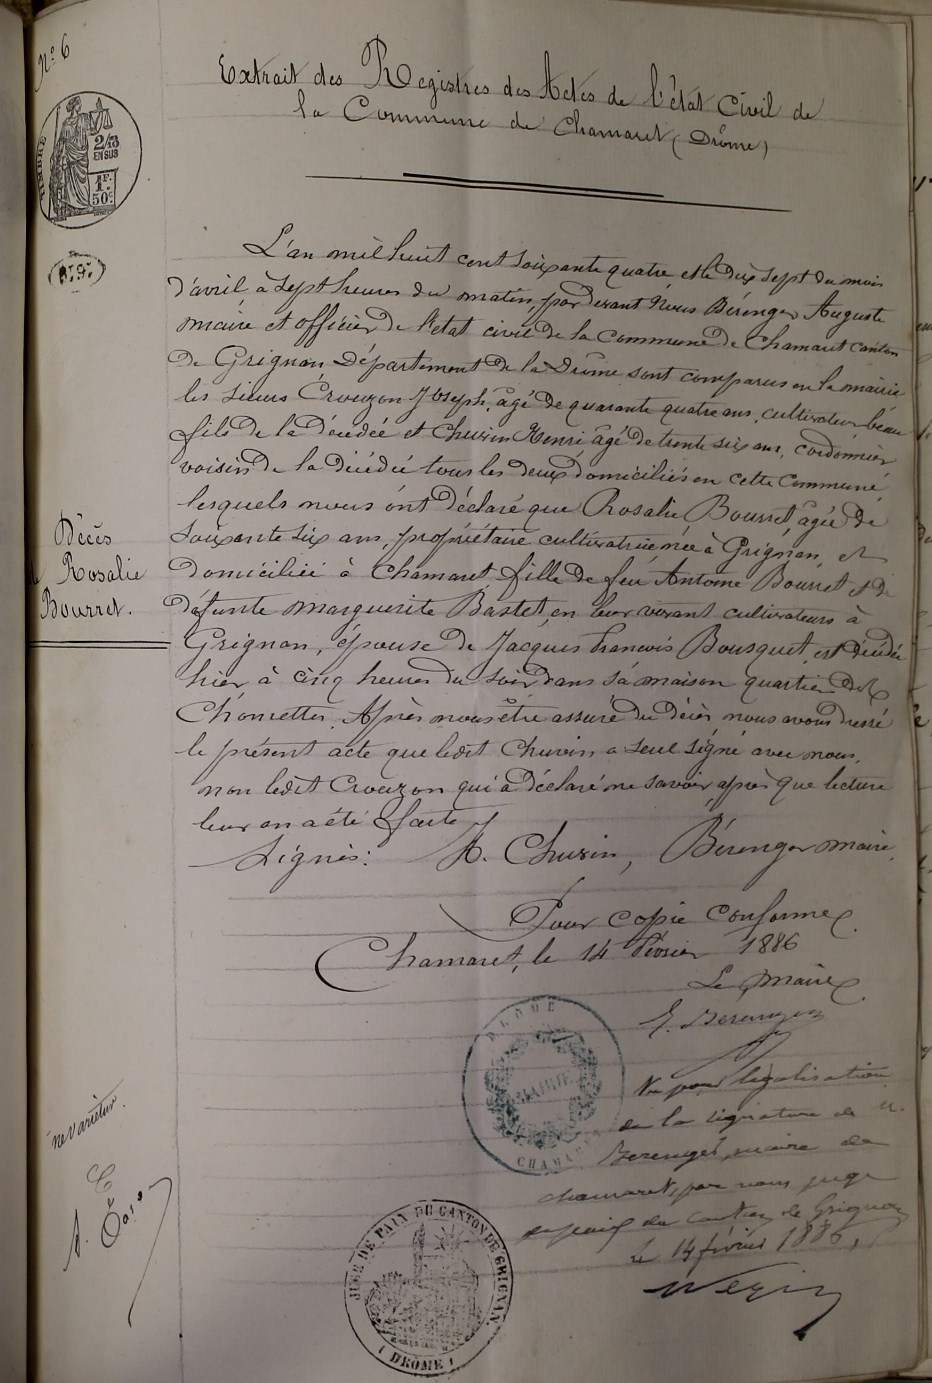 N° 6
Extrait des Registres des Actes de l'état Civil de
la Commune de Chamaret (Drôme)
TIMBRE
2/10
EN SUS
1F.
50c.
L'an mil huit cent soixante quatre et le dix sept du mois
d'avril à sept heures du matin, par devant Nous Bérenger Auguste
maire et officier de l'état civil de la Commune de Chamaret canton
de Grignan Département de la Drôme sont comparus en la mairie
les sieurs Crouzon Joseph, âgé de quarante quatre ans, cultivateur beau
fils de la décédée et Chuvin Henri âgé de trente six ans, cordonnier
voisin de la décédée tous les deux domiciliés en cette Commune
lesquels nous ont déclaré que Rosalie Bourret, âgée de
soixante six ans, propriétaire cultivatrice née à Grignan, et
domiciliée à Chamaret, fille de feu Antoine Bourret et de
défunte Marguerite Bastet, en leur vivant cultivateurs à
Grignan, épouse de Jacques francois Bousquet, est décédée
hier à cinq heures du soir dans sa maison quartier des
Chomettes. Après nous être assuré du décès nous avons dressé
le présent acte que ledit Chuvin a seul signé avec nous,
non ledit Crouzon qui a déclaré ne savoir, après que lecture
leur en a été faite
Signés: H. Chuvin, Bérenger maire.
Décès
de Rosalie
Bourret.
Pour copie conforme
Chamaret, le 14 février 1886
Le Maire
Berenger
DROME
MAIRIE
CHAMARET
Vu pour légalisation
de la signature de M.
Berenger, maire de
chamaret, par nous juge
de paix du canton de Grignan
le 14 février 1886,
ne varietur.
JUGE DE PAIX DU CANTON DE GRIGNAN
(DRÔME)